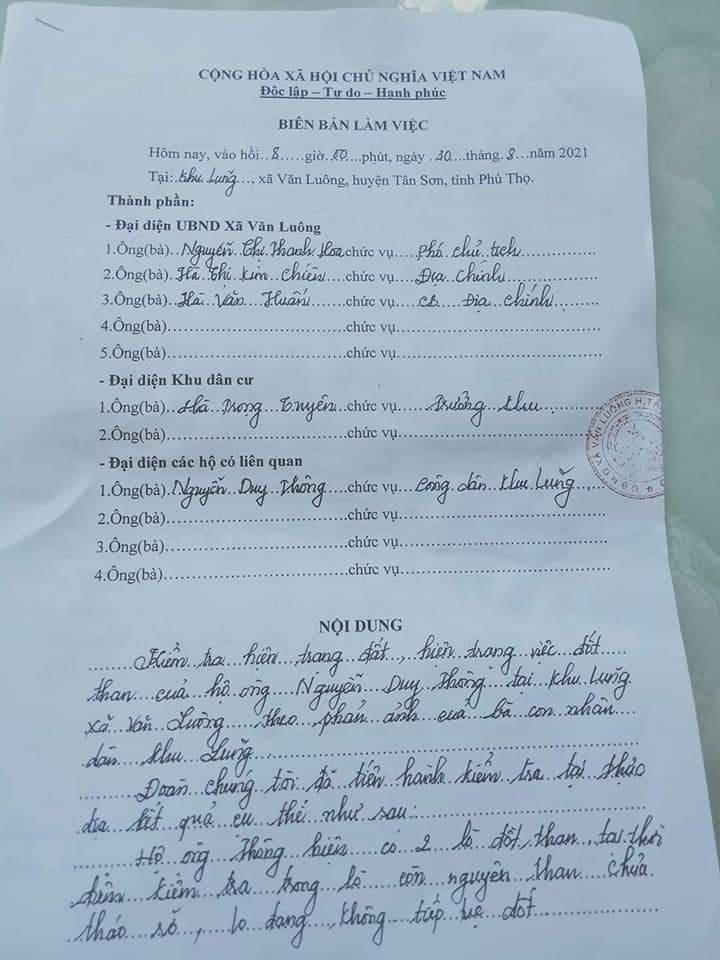 CỘNG HÒA XÃ HỘI CHỦ NGHĨA VIỆT NAM
Độc lập – Tự do – Hạnh phúc
BIÊN BẢN LÀM VIỆC
Hôm nay, vào hồi..8.....giờ.10...phút, ngày ..30....tháng.8...năm 2021
Tại:.Khu Luông..., xã Văn Luông, huyện Tân Sơn, tỉnh Phú Thọ.
Thành phần:
- Đại diện UBND Xã Văn Luông
1.Ông(bà)..Nguyễn Thị Thanh Hoa.chức vụ....Phó chủ tịch
2.Ông(bà).Hà Thị Kim Chiên......chức vụ.....Địa chính
3.Ông(bà)..Hà Văn Huấn......chức vụ.....CB Địa chính
4.Ông(bà)..............................chức vụ..............................
5.Ông(bà)..............................chức vụ..............................
- Đại diện Khu dân cư
1.Ông(bà)..Hà Trọng Tuyên...chức vụ.....Trưởng khu
2.Ông(bà)..............................chức vụ..............................
- Đại diện các hộ có liên quan
1.Ông(bà).Nguyễn Duy Thông....chức vụ....Công dân khu Luông
2.Ông(bà)..............................chức vụ..............................
3.Ông(bà)..............................chức vụ..............................
4.Ông(bà)..............................chức vụ..............................
UBND XÃ VĂN LUÔNG H.TÂ
NỘI DUNG
Kiểm tra hiện trạng đất, hiện trạng việc đốt
than của hộ ông Nguyễn Duy Thông tại khu Luông
xã Văn Luông theo phản ánh của bà con nhân
dân khu Luông
Đoàn chúng tôi đã tiến hành kiểm tra tại
địa kết quả cụ thể như sau:
Hộ ông Thông hiện có 2 lò đốt than, tại thời
điểm kiểm tra trong lò còn nguyên than chưa
tháo rỡ, lò đang không tiếp tục đốt